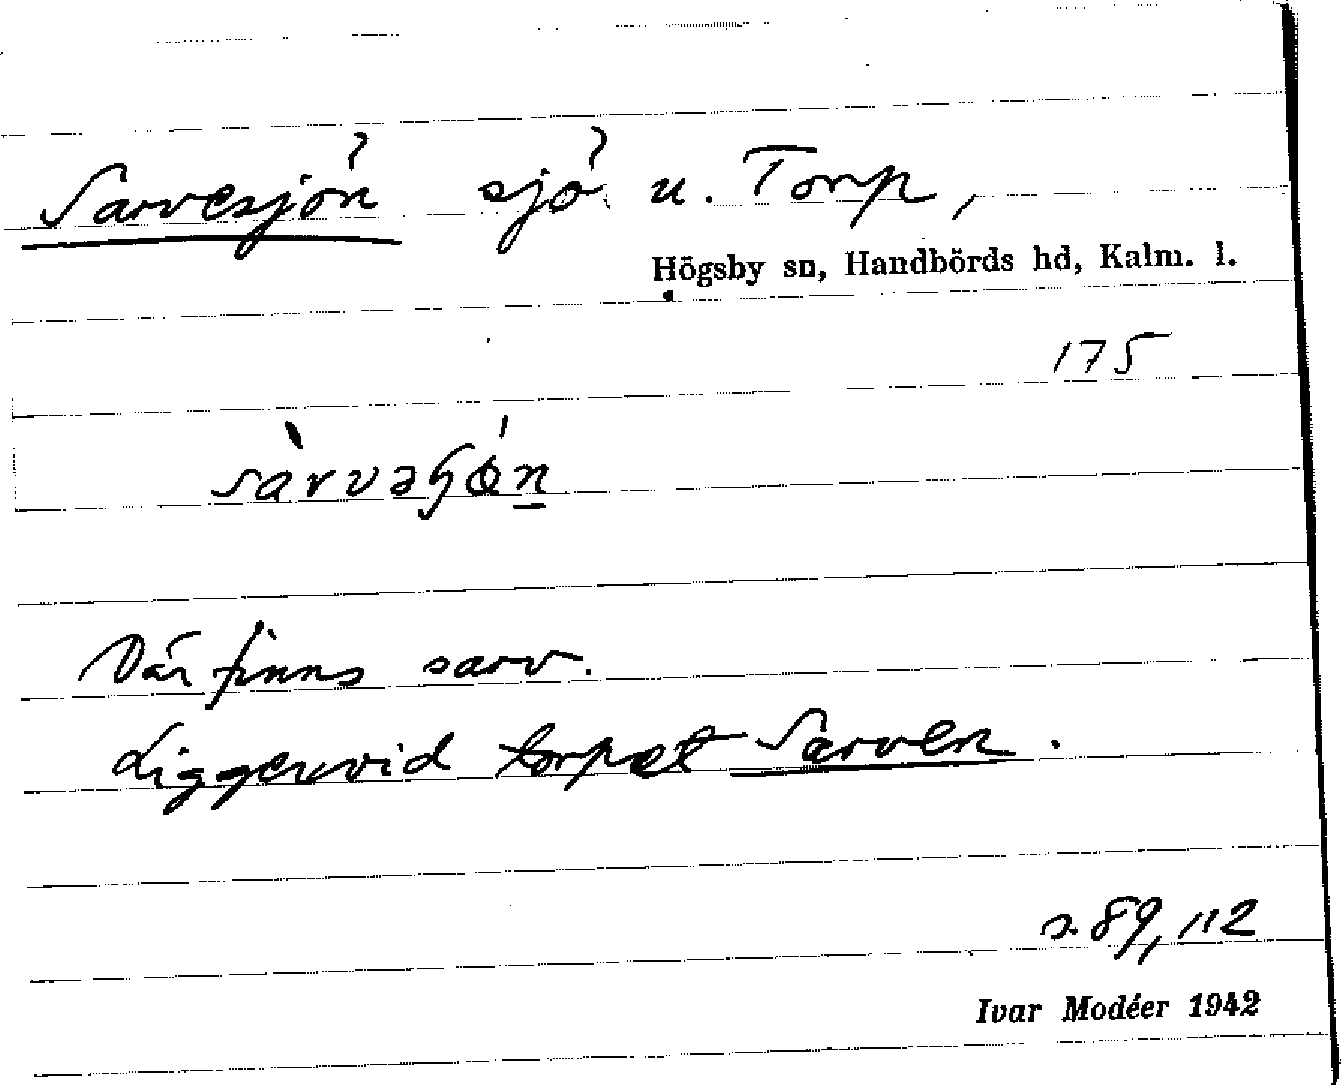 Sarvesjön sjö u. Torp,
Högsby sn, Handbörds hd, Kalm. l.
175
Där finns sarv.
Ligger vid torpet Sarven.
s. 89, 112
Ivar Modéer 1942